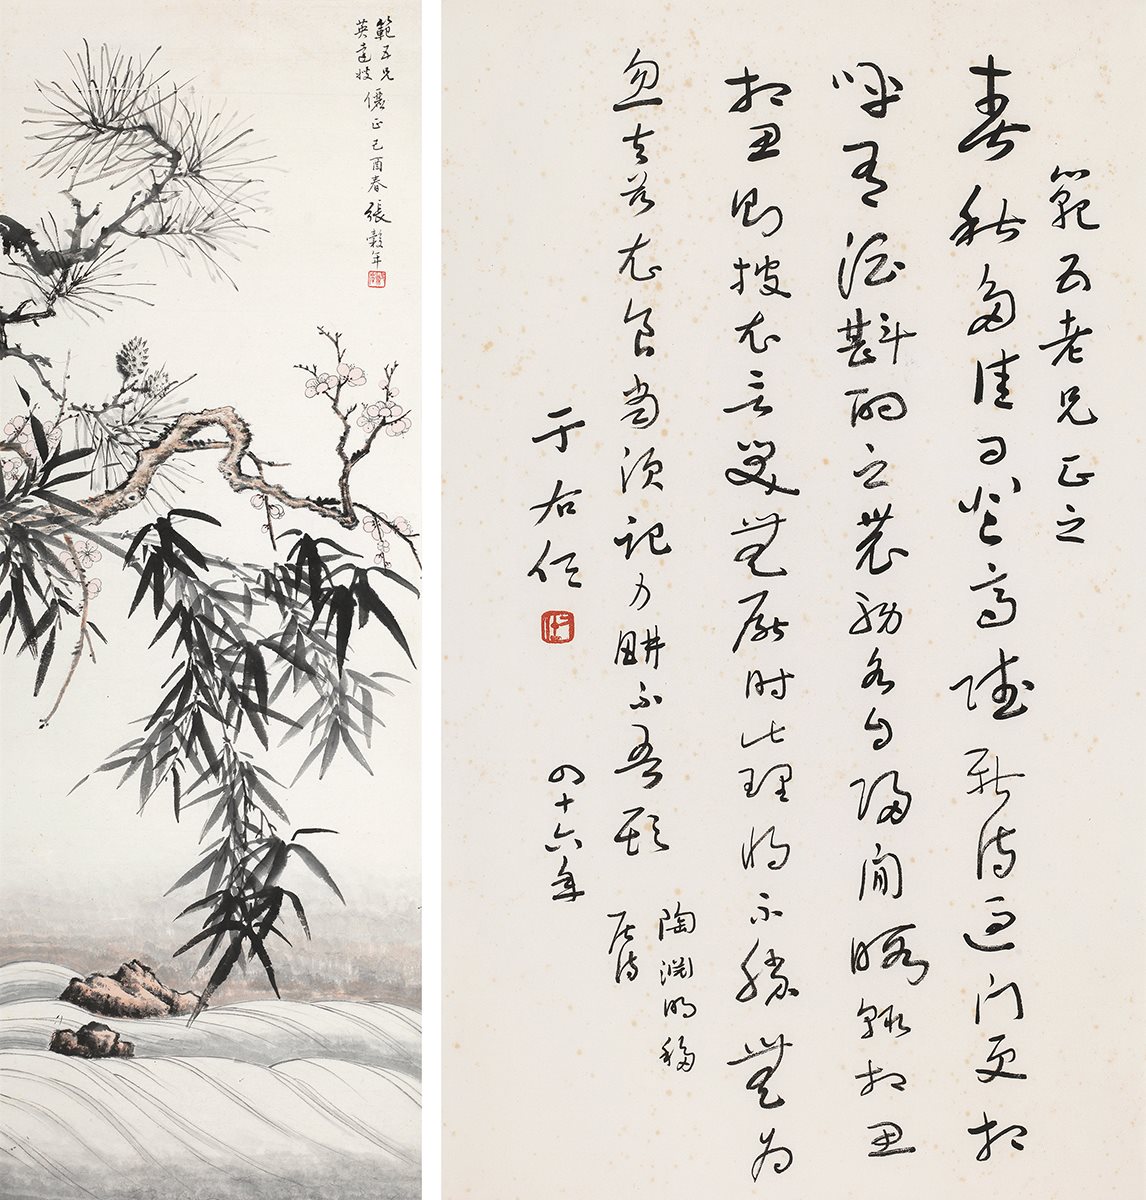 範五兄
英
儷正己酉春張穀年
範五老兄正之
春秋多佳日登高賦新詩過門更相
呼有酒斟酌之農務各自歸閒暇輒相思
相思則披衣言笑無厭時此理將不勝無為
忽去茲衣食當須記力畊不吾欺
陶淵明移
居詩
于右任
四十六年